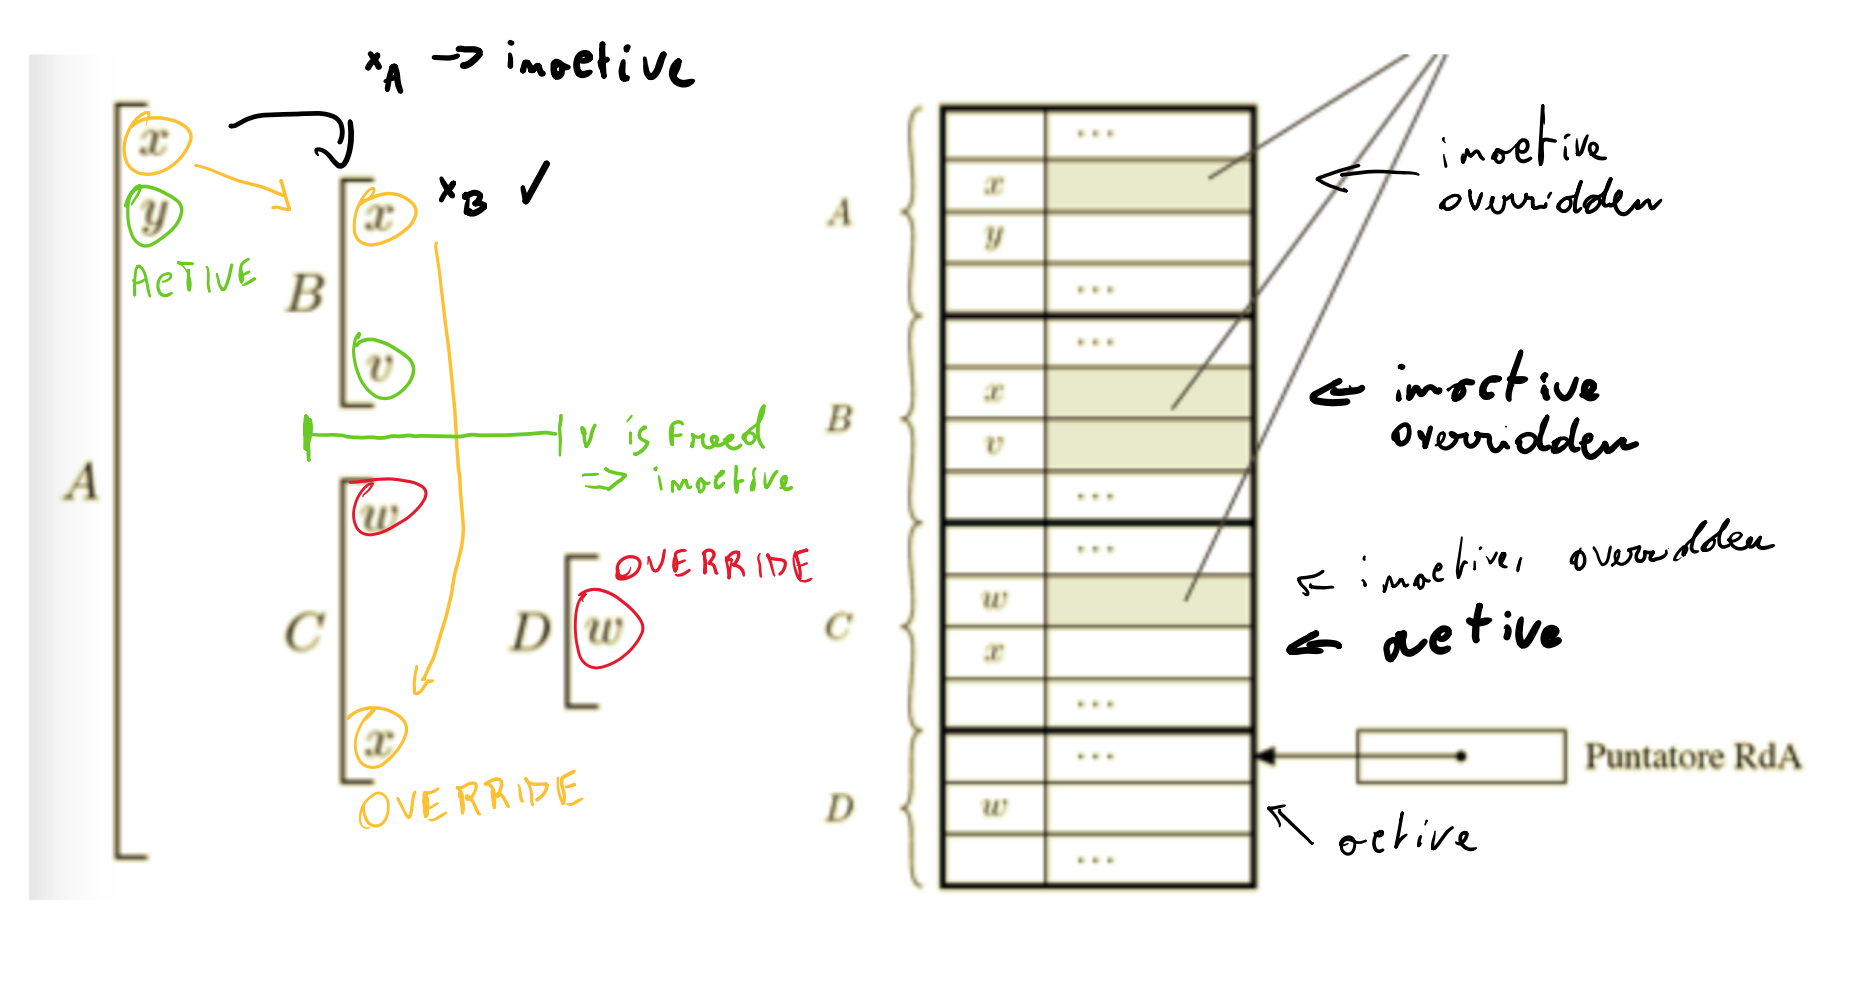 x_A → inactive
x
y
ACTIVE
x
x_B ✓
B
v
v is freed
⇒ inactive
A
w
OVERRIDE
C
D
w
x
OVERRIDE
...
A
x
y
...
inactive
overridden
...
B
x
v
...
← inactive
overridden
...
C
w
x
...
← inactive, overridden
← active
...
D
w
...
Puntatore RdA
active